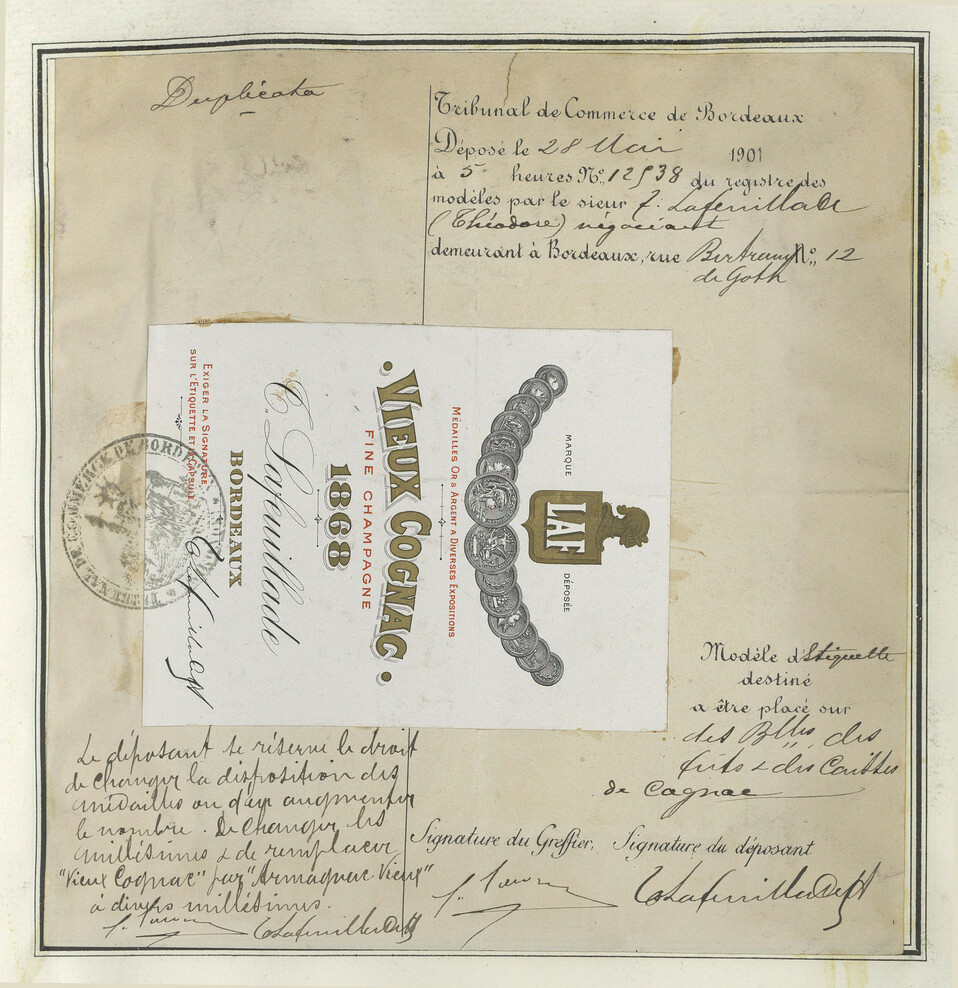 Duplicata
Tribunal de Commerce de Bordeaux
Déposé le 28 Mai 1901
à 5 heures Nº. 12538 du registre des
modèles par le sieur T. Lafeuillade
(Théodore) négociant
demeurant à Bordeaux, rue Bertrand Nº. 12
de Goth
MARQUE DÉPOSÉE
LAF
MÉDAILLES OR & ARGENT A DIVERSES EXPOSITIONS
VIEUX COGNAC
FINE CHAMPAGNE
1868
T. Lafeuillade
BORDEAUX
EXIGER LA SIGNATURE
SUR L'ETIQUETTE ET LA CAPSULE
TRIBUNAL DE COMMERCE DE BORDEAUX
Modèle d'Etiquette
destiné
a être placé sur
des Blles, des
futs & des Caisses
de Cognac
Le déposant se réserve le droit
de changer la disposition des
médailles ou d'en augmenter
le nombre. De changer les
millésimes & de remplacer
"Vieux Cognac" par "Armagnac Vieux"
à divers millésimes.
Signature du Greffier, Signature du déposant